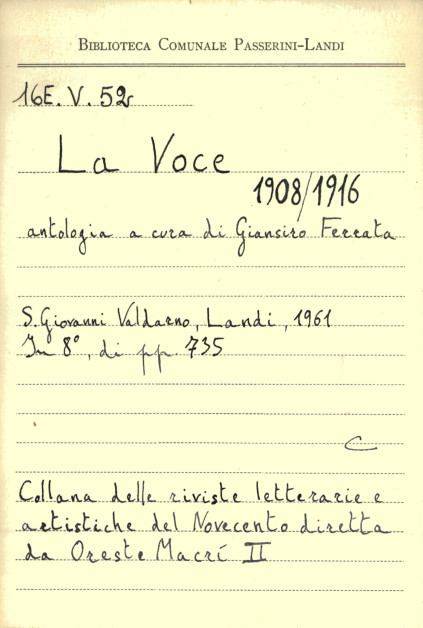 BIBLIOTECA COMUNALE PASSERINI-LANDI
16E. V. 52
La Voce
1908/1916
antologia a cura di Giansiro Ferrata
S. Giovanni Valdarno, Landi, 1961
In 8°, di pp. 735
C
Collana delle riviste letterarie e
artistiche del Novecento diretta
da Oreste Macrí II